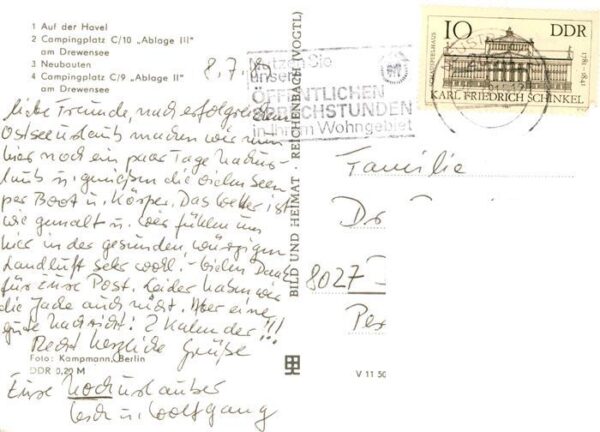 1 Auf der Havel
2 Campingplatz C/10 „Ablage III"
am Drewensee
3 Neubauten
4 Campingplatz C/9 „Ablage II"
am Drewensee
8.7.
liebe Freunde, nach erfolgreichem
Ostseeurlaub machen wir nun
hier noch ein paar Tage Nachur-
laub u. genießen die vielen Seen
per Boot u. Körper. Das Wetter ist
wie gemalt u. wir fühlen uns
hier in der gesunden, würzigen
Landluft sehr wohl. - Vielen Dank
für Eure Post. Leider haben wir
die Jacke auch nicht. Aber eine
gute Nachricht: 2 Kalender!!!
Recht herzliche Grüße
Foto: Kampmann, Berlin
DDR 0,20 M
Eure Nachurlauber
u. Wolfgang
BILD UND HEIMAT · REICHENBACH (VOGTL)
V 11 50
Nutzen Sie
unsere
ÖFFENTLICHEN
SPRECHSTUNDEN
in Ihrem Wohngebiet
10 DDR
SCHAUSPIELHAUS
1781-1841
KARL FRIEDRICH SCHINKEL
Familie
Dr
8027